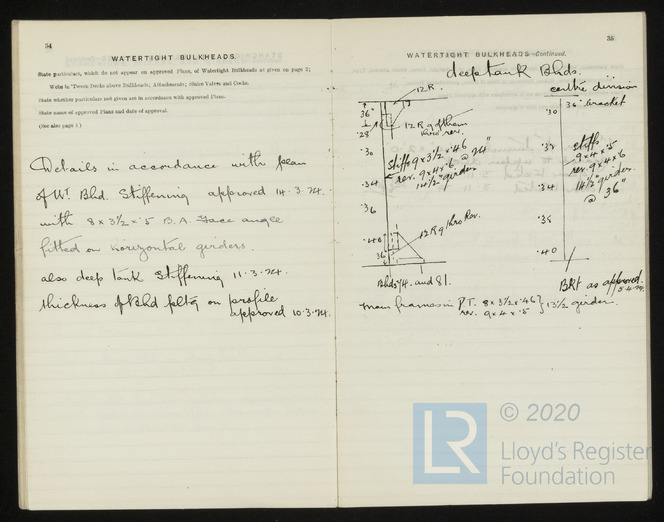 34
WATERTIGHT BULKHEADS.
State particulars, which do not appear on approved Plans, of Watertight Bulkheads as given on page 2;
Webs in 'Tween Decks above Bulkheads; Attachments; Sluice Valves and Cocks.
State whether particulars not given are in accordance with approved Plans.
State name of approved Plans and date of approval.
(See also page 8)
Details in accordance with plan
of Wt. Bhd. Stiffening approved 14.3.24.
with 8 x 3½ x .5 B.A. face angle
fitted on horizontal girders.
also deep tank stiffening 11.3.24.
thickness of Bhd pltg on profile
approved 10.3.24.
35
WATERTIGHT BULKHEADS—Continued.
deep tank Bhds.
centre division
12 R.
36"
.28
.30
.34
.36
.40
36"
12 R 9 of them
thro rev.
stiffs 9 x 3½ x .46 @ 24"
rev. 9 x 4 x .6
14½" girder
12 R 9 thro Rev.
Bhds 74 and 81.
36" bracket
.30
.34
.38
.40
stiffs
9 x 4 x .5
rev. 9 x 4 x .6
14½" girder
@ 36"
BKt as approved.
main frames in P.T. 8 x 3½ x .46
rev. 9 x 4 x .5
13½ girder
LR
© 2020
Lloyd's Register
Foundation